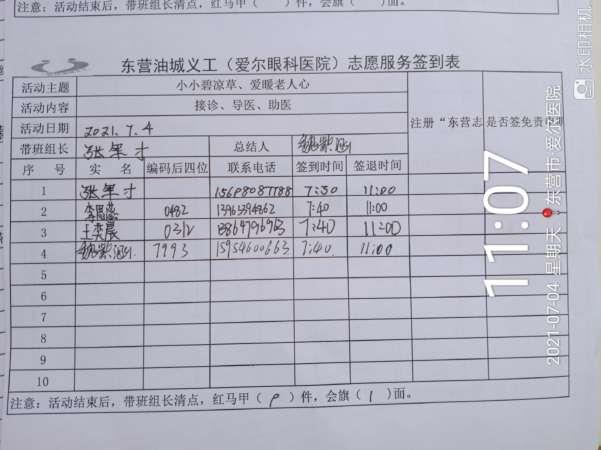 注意：活动结束后，带班组长清点，红马甲（ ）件，会旗（ ）面。
东营油城义工（爱尔眼科医院）志愿服务签到表
活动主题 小小碧凉草、爱暖老人心
活动内容 接诊、导医、助医
活动日期 2021.7.4 注册“东营志 是否签免责
带班组长 张军才 总结人
序 号 实 名 编码后四位 联系电话 签到时间 签退时间
1 张军才 15698087788 7:50 11:00
2 0482 13963394862 7:40 11:00
3 王奕晨 0312 7:40 11:00
4 7993 15954600663 7:40 11:00
5
6
7
8
9
10
注意：活动结束后，带班组长清点，红马甲（ 9 ）件，会旗（ 1 ）面。
水印相机
11:07
2021-07-04 星期天 东营市·爱尔眼科医院